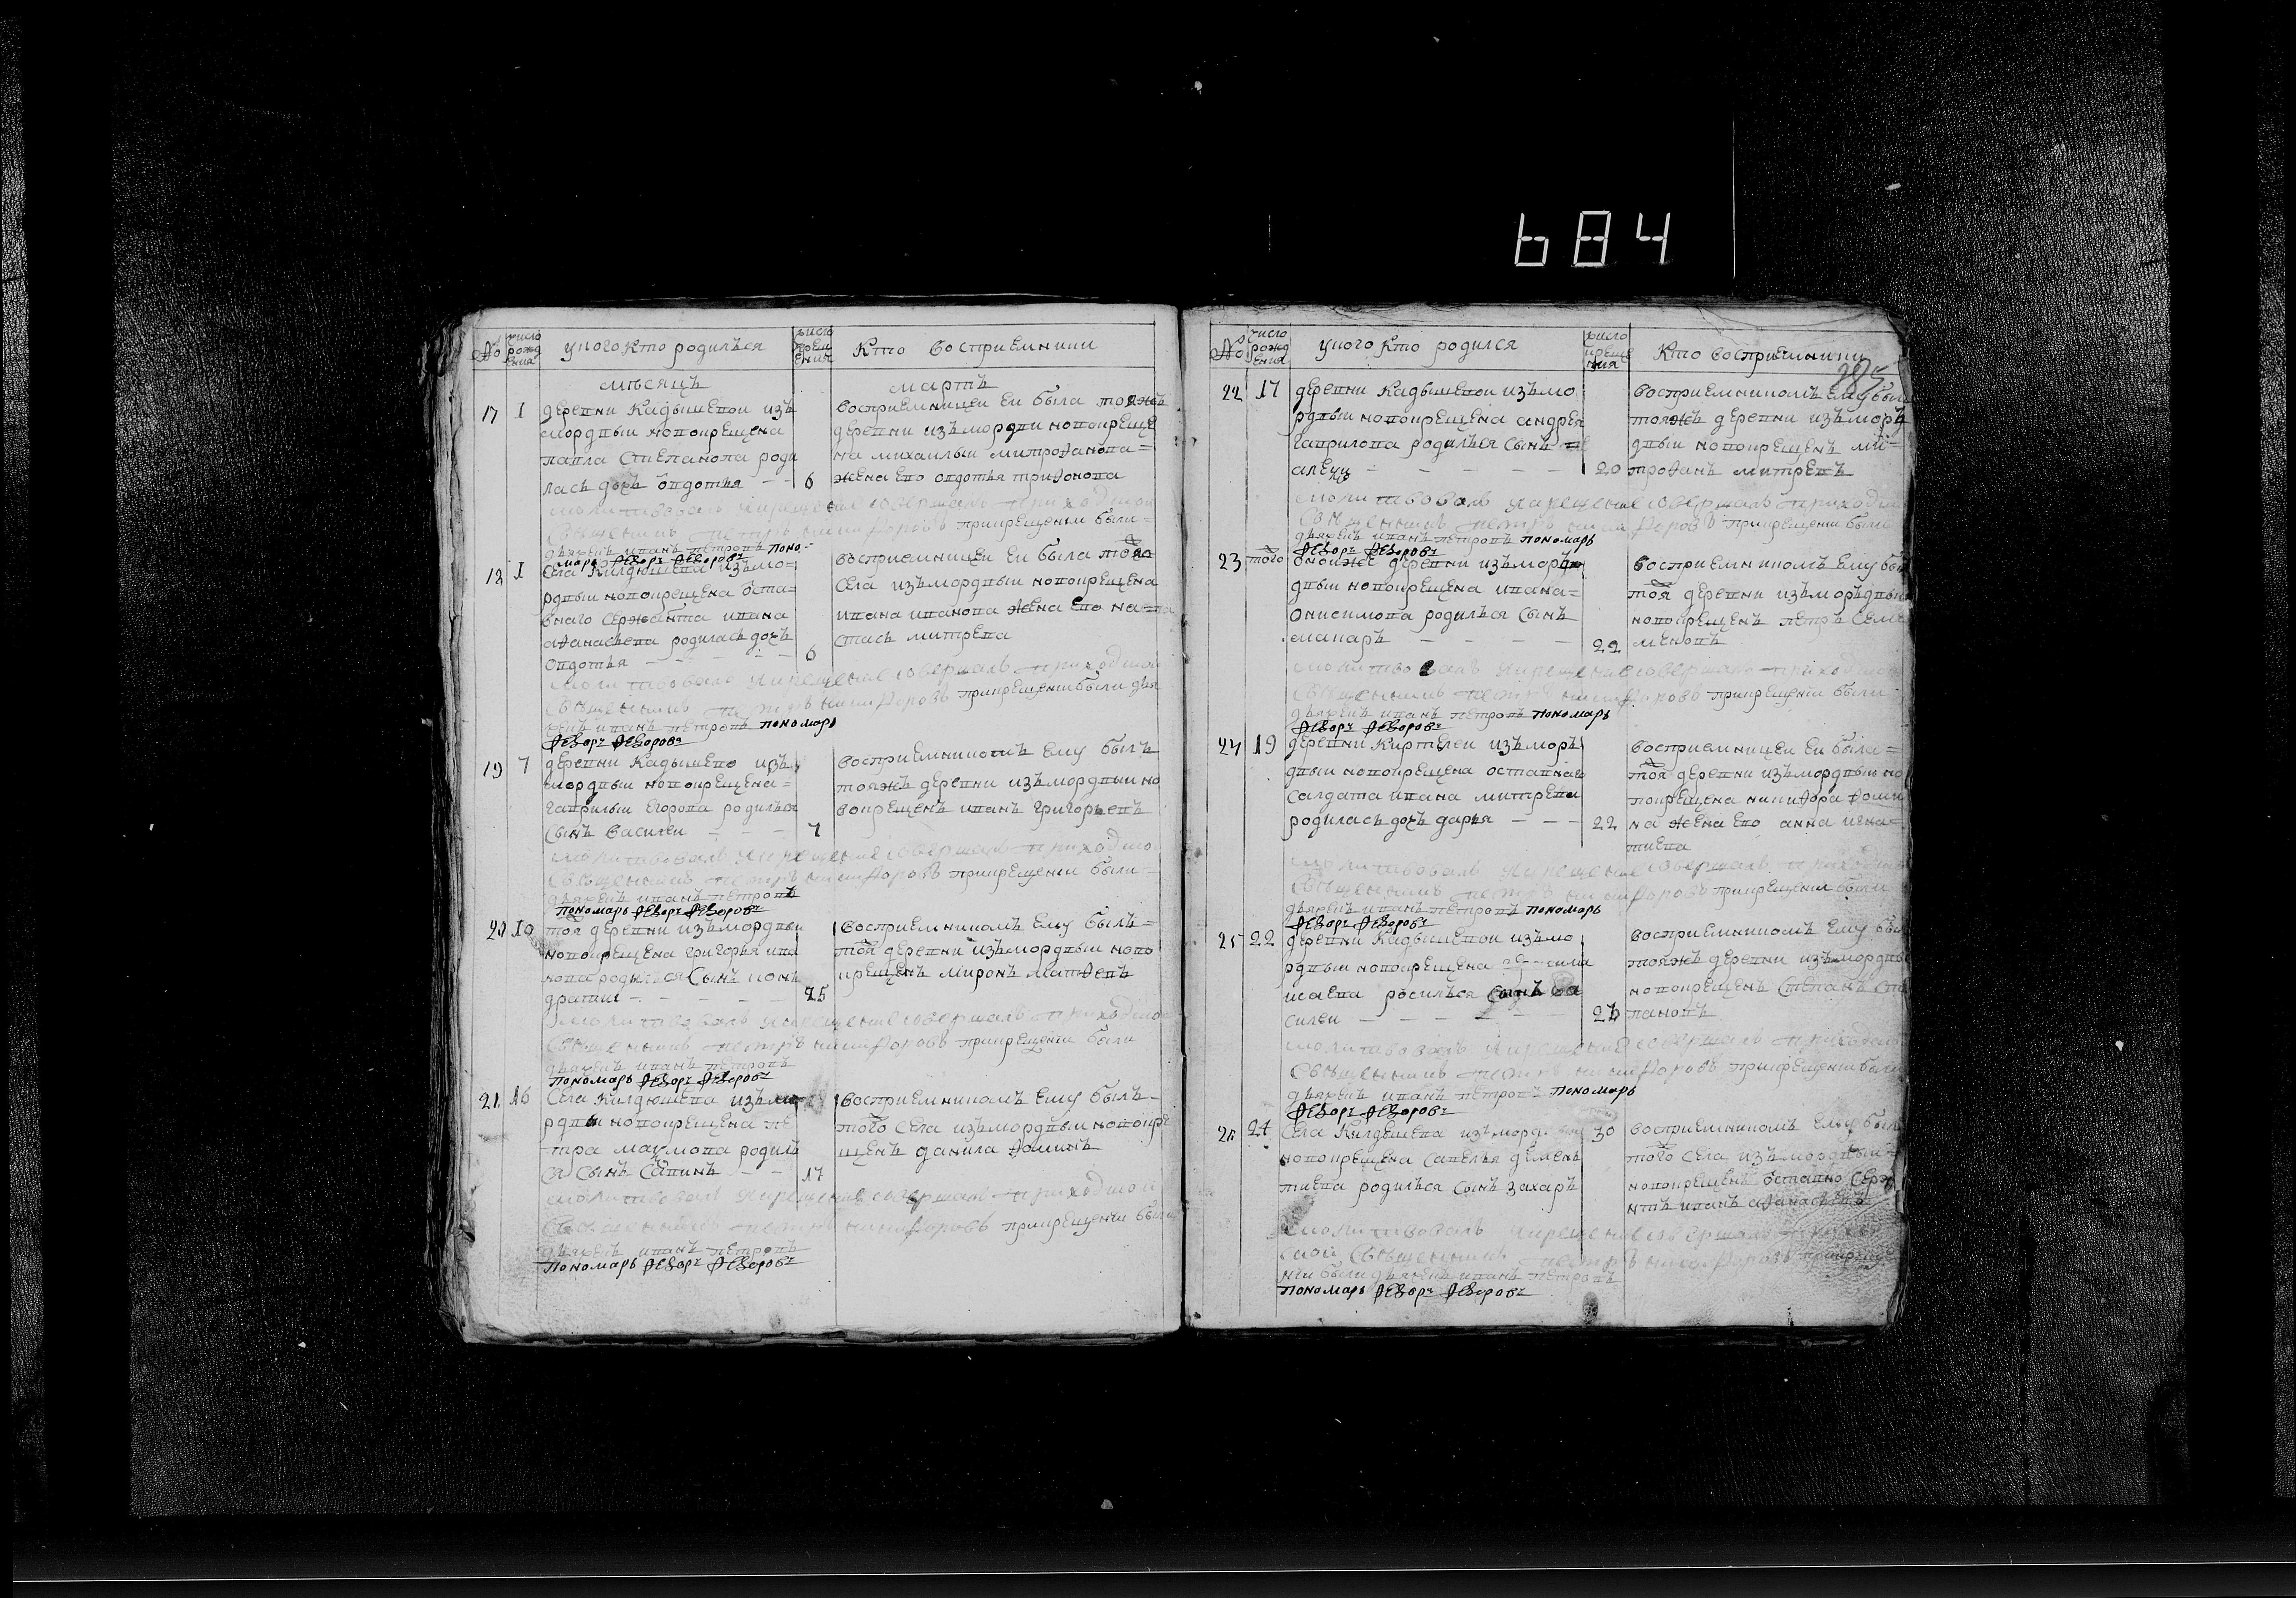 684
№ число рождения у кого кто родилъся число крещения кто восприемники
мѣсяцъ мартъ
17 1 деревни Кадышевои изъ
мордвы новокрещена
павла Степанова роди
лась дочь овдотья 6
восприемницеи еи была тояжъ
деревни изъ мордвы новокреще
на михаилы митрофанова
жена ево овдотья трифонова
молитвовалъ и крещение совершалъ приходской
священникъ петръ никифоровъ при крещении были
дьячекъ иванъ петровъ поно-
марь Ѳедоръ Ѳедоровъ
18 1 Села Килдюшева изъ мо-
рдвы новокрещена отста-
внаго сержанта ивана
афанасьева родилась дочь
овдотья 6
восприемницеи еи была тогож
села изъ мордвы новокрещена
ивана иванова жена ево на-
стась митрева
молитвовалъ и крещение совершалъ приходской
священникъ петръ никифоровъ при крещении были дья
чекъ иванъ петровъ пономарь
Ѳедоръ Ѳедоровъ
19 7 деревни Кадышево изъ
мордвы новокрещена
гаврилы Егорова родилься
сынъ василеи 7
восприемникомъ ему былъ
тояжъ деревни изъ мордвы но
вокрещенъ иванъ григорьевъ
молитвовалъ и крещение совершалъ приходско
священникъ петръ никифоровъ при крещении были
дьячекъ иванъ петровъ
пономарь Ѳедоръ Ѳедоровъ
20 10 тоя деревни изъ мордвы
новокрещена григорья ива
нова родился сынъ конъ
дратии 25
восприемникомъ ему былъ
тоя деревни изъ мордвы ново
крещенъ миронъ матфевъ
молитвовалъ и крещение совершалъ приходской
священникъ петръ никифоровъ при крещении были
дьячекъ иванъ петровъ
пономарь Ѳедоръ Ѳедоровъ
21 16 Села Килдюшева изъ мо
рдвы новокрещена пе
тра родилъ
ся сынъ савинъ 17
восприемникомъ ему былъ
того села изъ мордвы новокре
щенъ данила фоминъ
молитвовалъ и крещение совершалъ приходской
священникъ петръ никифоровъ при крещении были
дьячекъ иванъ петровъ
пономарь Ѳедоръ Ѳедоровъ
№ число рождения у кого кто родился число крещения кто восприемники
22 17 деревни Кадышевои изъ мо
рдвы новокрещена андрея
гаврилова родилься сынъ
алекѣи 20
восприемникомъ ему был
тояжъ деревни изъ морд
двы новокрещенъ ми-
трофанъ митревъ
молитвовалъ и крещение совершалъ приходской
священникъ петръ никифоровъ при крещении были
дьячекъ иванъ петровъ пономарь
Ѳедоръ Ѳедоровъ
23 того оноиже деревни изъ мор
двы новокрещена ивана
онисимова родилься сынъ
макаръ 22
восприемникомъ ему бы
тоя деревни изъ морьдвы
новокрещенъ петръ Семе
меновъ
молитвовалъ и крещение совершалъ приходской
священникъ петръ никифоровъ при крещении были
дьячекъ иванъ петровъ пономарь
Ѳедоръ Ѳедоровъ
24 19 деревни Киртелеи изъ морь
двы новокрещена оставнаго
салдата ивана митрева
родилась дочь дарья 22
восприемницеи еи была
тоя деревни изъ мордвы но
вокрещена никифора фоми
на жена ево анна игна-
тиева
молитвовалъ и крещение совершалъ приходской
священникъ петръ никифоровъ при крещении были
дьячекъ иванъ петровъ пономарь
Ѳедоръ Ѳедоровъ
25 22 деревни Кадышевои изъ мо
рдвы новокрещена
исаева росилься сынъ ва
силеи
восприемникомъ ему бы
тояжъ деревни изъ мордвы
новокрещенъ Степанъ Сте
пановъ
молитвовалъ и крещение совершалъ приходской
священникъ петръ никифоровъ при крещении были
дьячекъ иванъ петровъ пономарь
Ѳедоръ Ѳедоровъ
24 Села Килдешева изъ морд 30
новокрещена савелья демень
тиева родилься сынъ захаръ
восприемникомъ ему был
того села изъ мордвы
новокрещенъ оставно серж
нтъ иванъ афанасьевъ
молитвовалъ и крещение совершалъ приход
ской священникъ петръ никифоровъ при креще
нии были дьячекъ иванъ петровъ
пономарь Ѳедоръ Ѳедоровъ